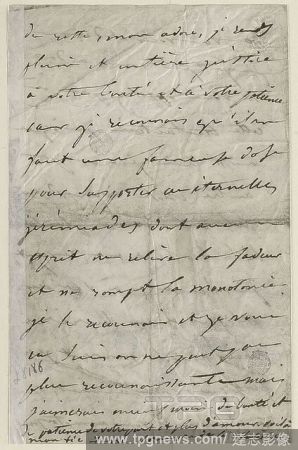 de reste, mon adoré, je rends
pleine et entière justice
à votre bonté et à votre patience
car je reconnais qu'il en
faut une fameuse dose
pour supporter ces éternelles
jérémiades dont aucun
esprit ne relève la fadeur
et ne rompt la monotonie.
je le reconnais et je vous
en suis on ne peut pas
plus reconnaissante mais
j'aimerais mieux moins de bonté et
de patience de votre part et plus d'amour voilà
mon
TPG
www.tpgnews.com/達志影像